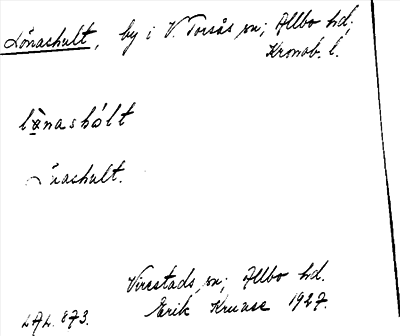 Lönashult, by i V. Torsås sn; Allbo hd;
Kronob. l.
lǝ̀nashólt
Lönashult.
Virestads sn; Allbo hd.
LAL. 873. Erik Kruuse 1927.